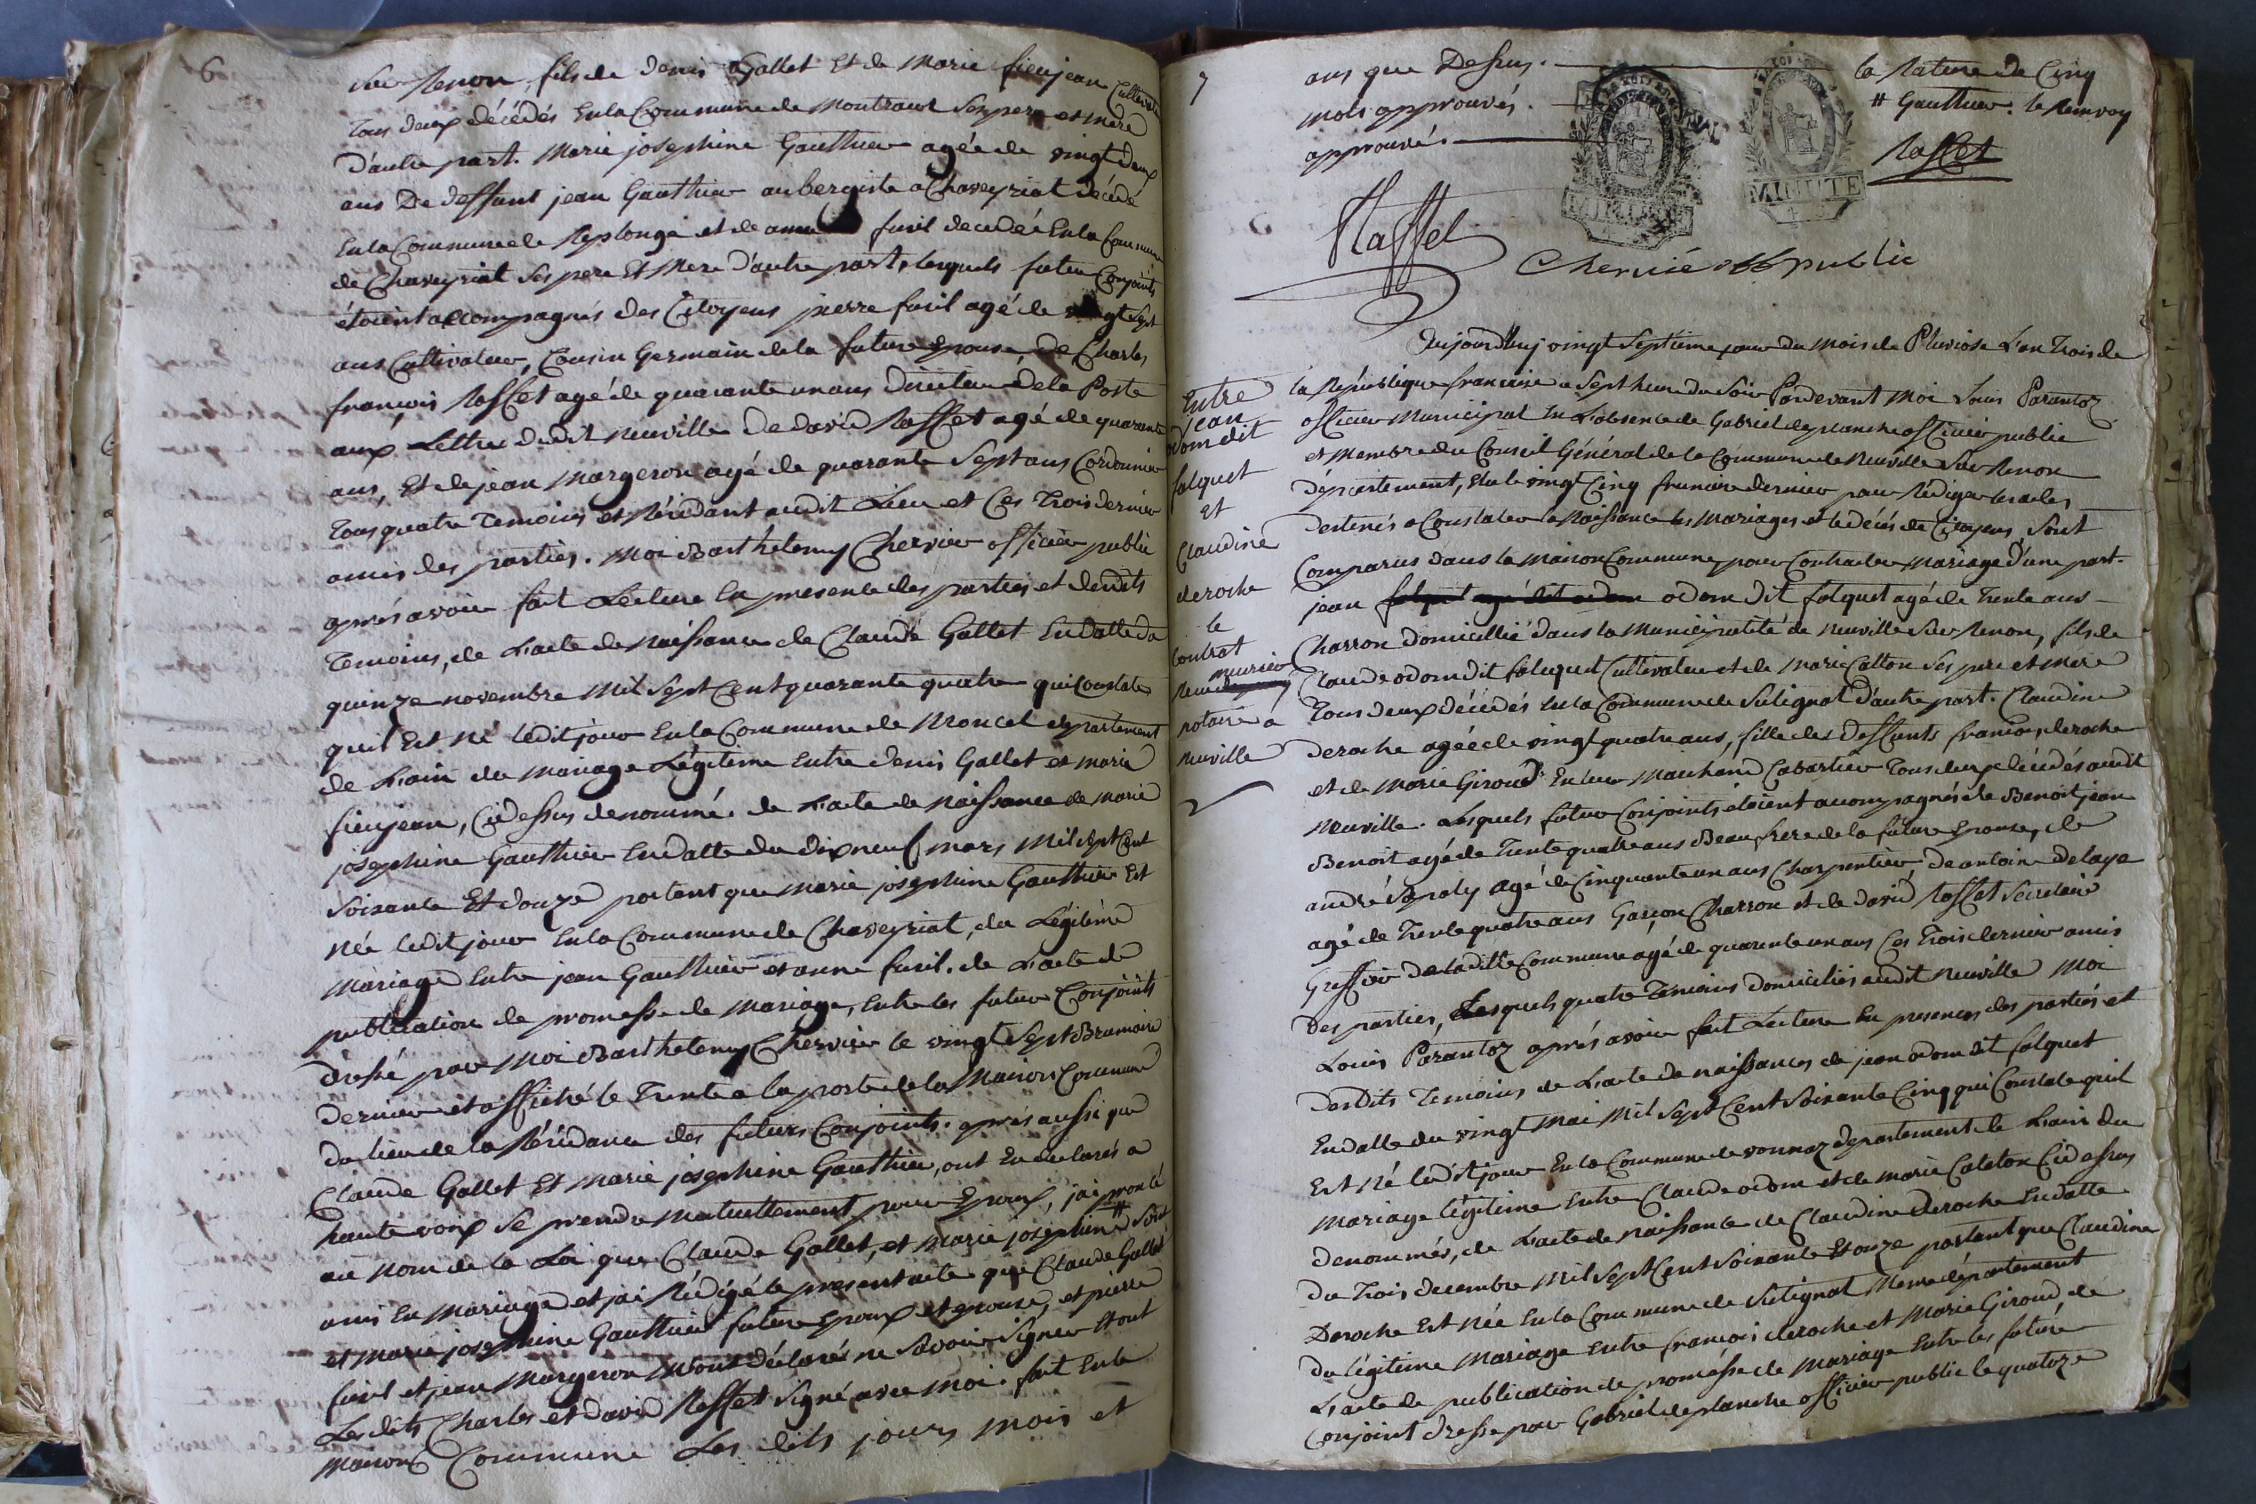 6
sur Renon, fils de denis Gallet Et de Marie fieujean Cultivateur
Tous deux décédés Enla Commune de Montracol Ses pere et mere
D'autre part. Marie josephine Gauthier agée de vingt deux
ans De deffunt jean Gauthier aubergiste a Chaveyriat décédé
Enla Commune de Replonge et de anne furil decedée Enla Commune
de Chaveyriat Ses pere Et Mere d'autre part, lesquels futur Conjoints
étoient accompagnés des Citoyens pierre furil agé de vingt Sept
ans Cultivateur, Cousin Germain de la future Epouse, De Charles
françois Raffet agé de quarante un ans Directeur de la Poste
aux Lettres dudit Neuville De david Raffet agé de quarante
ans, Et de jean Margeron agé de quarante Sept ans Cordonnier
Tous quatre Temoins et Résidant audit Lieu et Ces Trois dernier
amis des parties. Moi Barthelemy Chervier officier public
après avoir fait Lecture En presence des parties et desdits
Temoins, de L'acte de Naissance de Claude Gallet En datte du
quinze novembre Mil Sept Cent quarante quatre qui Constate
qu'il Est Né ledit jour Enla Commune de Moncel departement
de L'ain du Mariage Légitime Entre denis Gallet et marie
fieujean, Cidessus denommé. de L'acte de Naissance de Marie
josephine Gauthier En datte du dix neuf mars Mil Sept Cent
Soixante Et douze portant que Marie josephine Gauthier Est
Née ledit jour Enla Commune de Chaveyriat, du Légitime
Mariage Entre jean Gauthier et anne furil. de L'acte de
publication de promesse de Mariage, Entre les futur Conjoints
dressé par Moi Barthelemy Chervier le vingt Sept Brumaire
dernier et affiché le Trente a la porte de la Maison Commune
du lieu de la Résidance des futurs Conjoints. après aussi que
Claude Gallet Et Marie josephine Gauthier, ont Eu declarés a
haute voix Se prendre Mutuellement pour Epoux, jai prononcé
au Nom de la Loi que Claude Gallet, et Marie josephine # Sont
unis En Mariage et jai Rédigé le present acte que Claude Gallet
et Marie josephine Gauthier futurs Epoux et Epouse, et pierre
furil et jean Margeron ont déclarés ne Savoir Signer Et ont
Lesdits Charles et david Raffet Signé avec Moi. fait Enla
Maison Commune Les dits jours mois et
7
ans que Dessus. la Rature de Cinq
mots approuvés. # Gauthier. le Renvoy
approuvés
Raffet
MINUTE
MINUTE
Raffet
Chervié off public
Aujourdhuj vingt Septieme jour du Mois de Pluviose L'an Trois de
la République francaise a Sept heure du Soir Pardevant Moi Louis Parantoz
officier Municipal En L'absence de Gabriel deplanche officier public
et Membre du Conseil Général de la Commune de Neuville Sur Renon
departement, Elu le vingt Cinq frimaire dernier pour Rédiger les actes
destinés a Constater la Naissance les Mariages et le décés des Citoyens, Sont
Comparus dans la Maison Commune, pour Contracter Mariage D'une part.
jean odom dit falquet agé de Trente ans
Charron domicillié dans la Municipalité de Neuville Sur Renon, fils de
Claude odom dit falquet Cultivateur et de Marie Catton Ses pere et Mere
Tous deux décédés Enla Commune de Sulignat d'autre part. Claudine
deroche agée de vingt quatre ans, fille des deffunts francois deroche
et de Marie Giroud En leur Marchand Cabartier Tous deux décédés audit
Neuville. Lesquels futur Conjoints étoient accompagnés de Benoit jean
Benoit agé de Trente quatre ans Beaufrere de la future Epouse, de
andré agé de Cinquante un ans Charpentier, De antoine Delaye
agé de Trente quatre ans Garçon Charron et de David Raffet Secretaire
Greffier de laditte Commune agé de quarente un ans Ces Trois dernier amis
des parties, Lesquels quatre Temoins domiciliés audit Neuville Moi
Louis Parantoz après avoir fait Lecture En presences des parties et
des Dits Temoins de L'acte de naissances de jean odom dit falquet
En datte du vingt Mai Mil Sept Cent Soixante Cinq qui Constate qu'il
Est Né ledit jour Enla Commune de vonnaz departement de L'ain du
Mariage légitime Entre Claude odom et de Marie Catton Cidessus
denommés, de L'acte de Naissance de Claudine Deroche En datte
du Trois decembre Mil Sept Cent Soixante Et onze portant que Claudine
Deroche Est Née Enla Commune de Sulignat Meme département
du légitime Mariage Entre francois deroche et Marie Giroud, de
L'acte de publication de promésse de Mariage Entre les future
Conjoint dressé par Gabriel deplanche officier public le quatorze
Entre
jean
odom dit
falquet
Et
Claudine
deroche
le
Contrat
murier
notaire à
Neuville